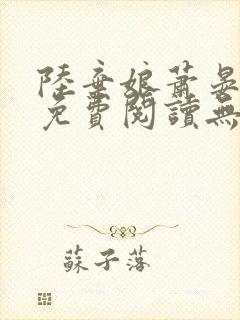 陸棄娘蕭晏
免費閱讀無
蘇子落